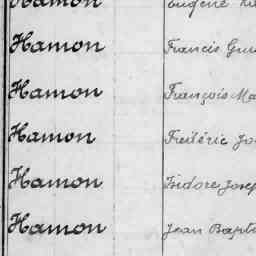 Hamon Eugène
Hamon Francis
Hamon François
Hamon Frédéric
Hamon Isidore
Hamon Jean